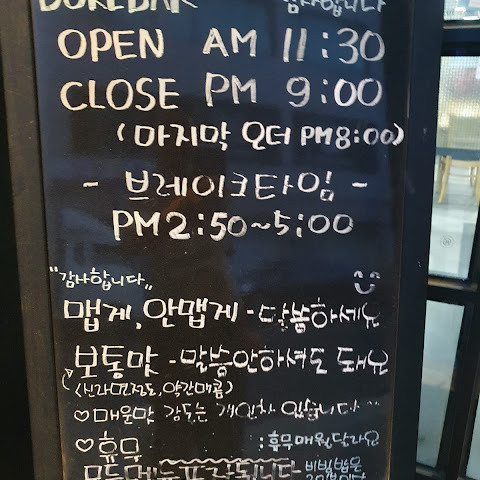 DOREBAR 감사합니다
OPEN AM 11:30
CLOSE PM 9:00
(마지막 오더 PM8:00)
- 브레이크타임 -
PM2:50~5:00
"감사합니다„
맵게, 안맵게 - 말씀하세요
보통맛 - 말씀안하셔도 돼요
(신라면정도, 약간매콤)
♡매운맛 강도는 개인차 있습니다
♡휴무 :휴무매월달라요
모든메뉴포장됩니다 비빔밥은